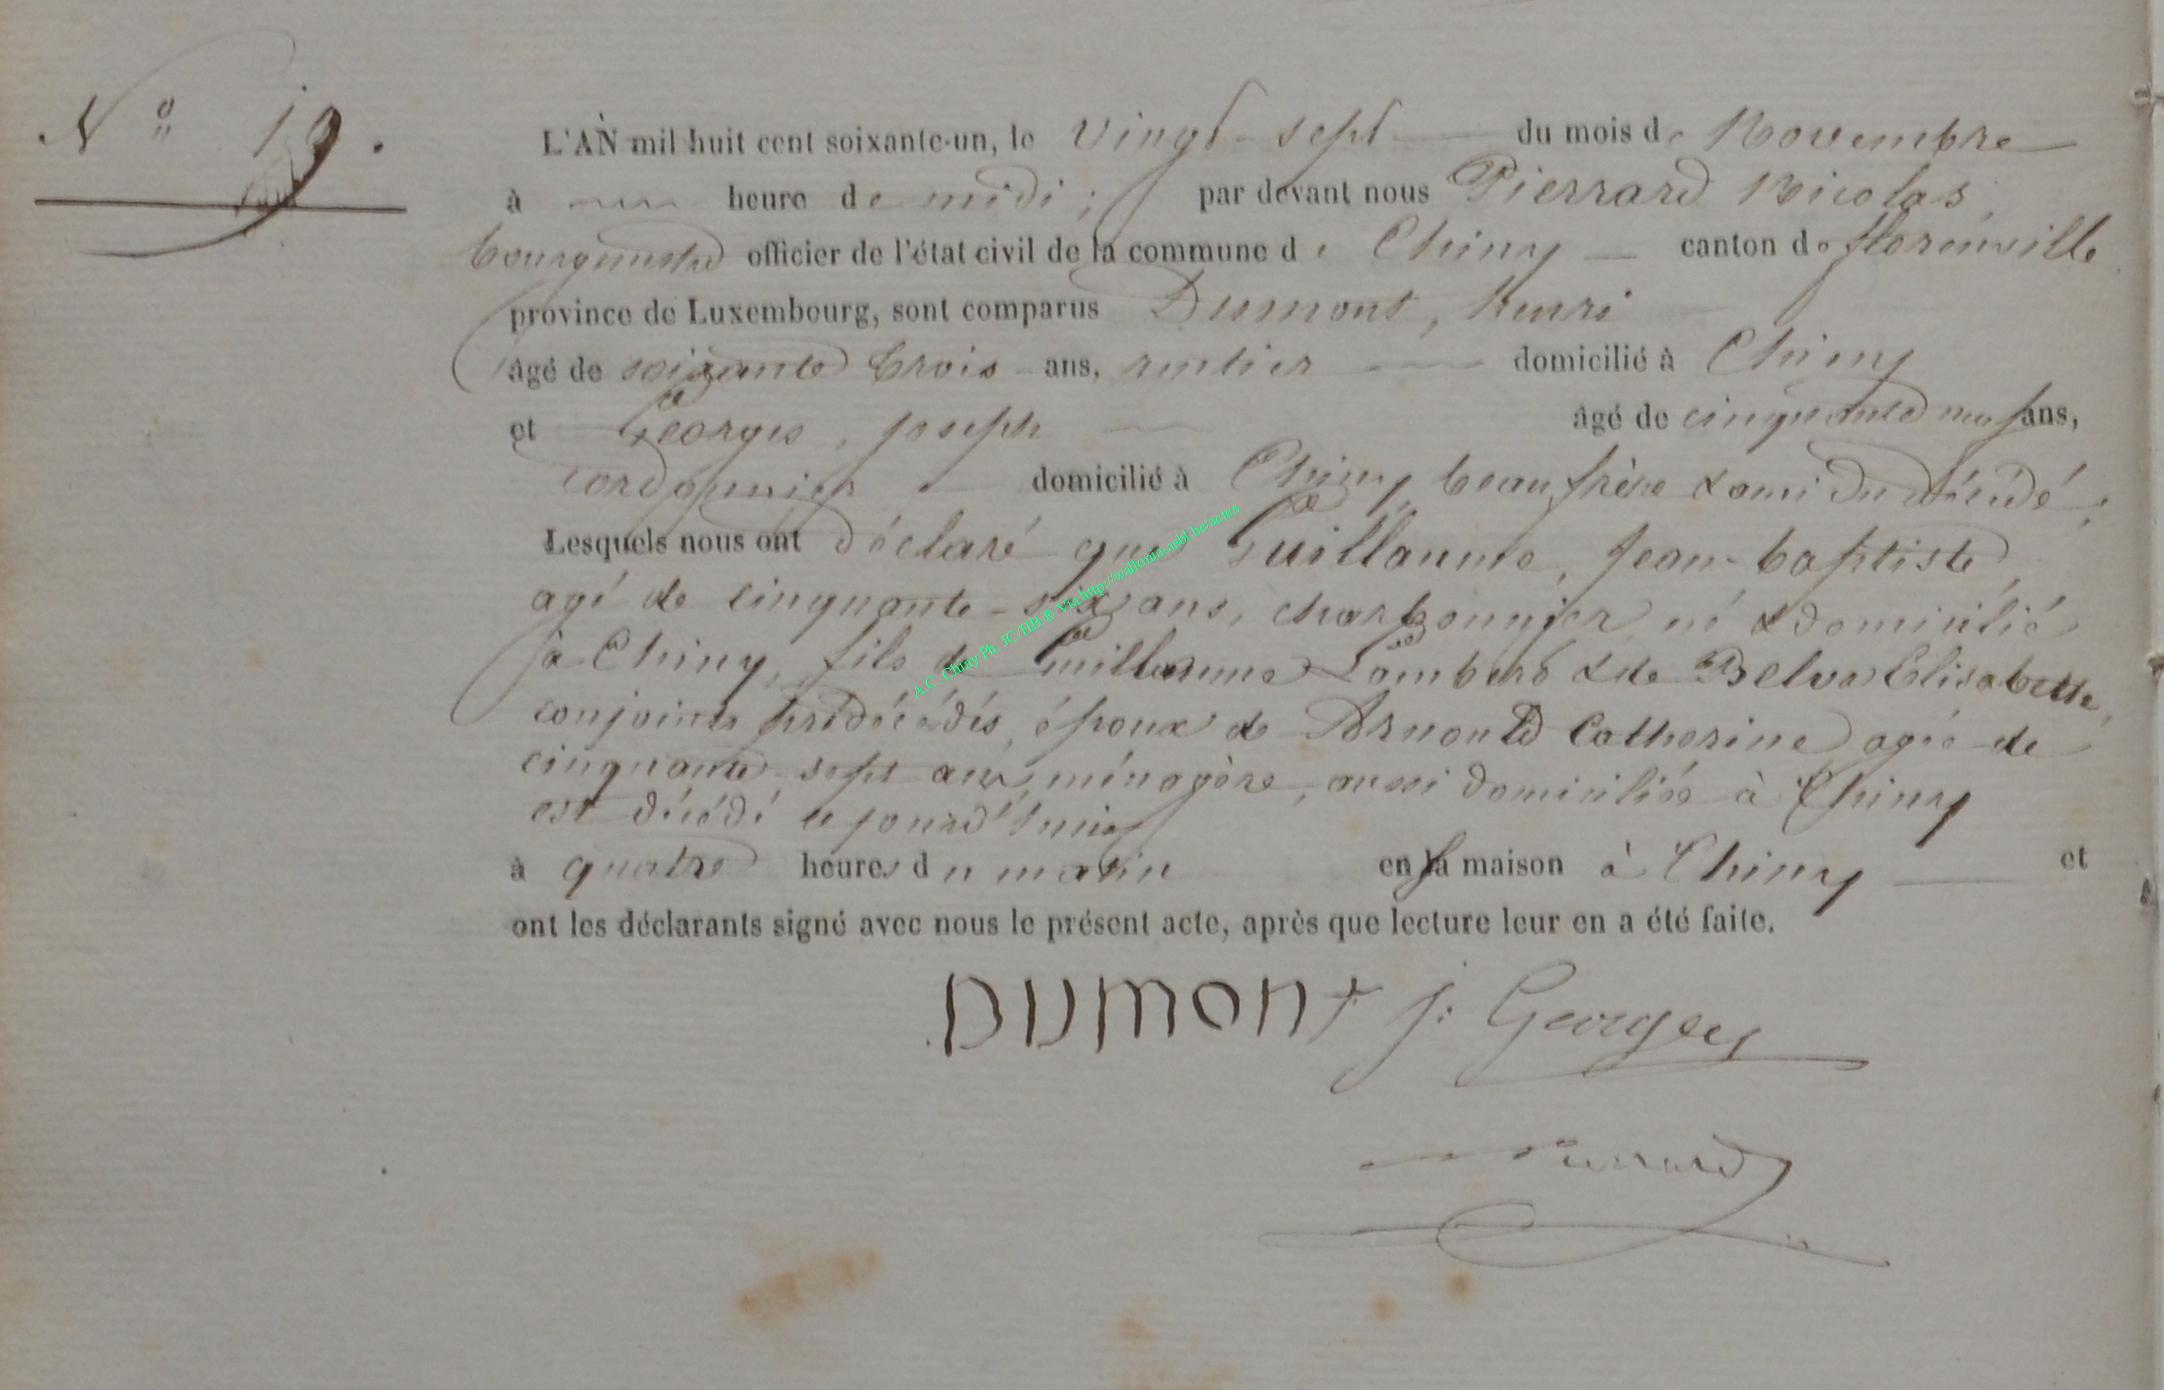 N° 19.
L'AN mil huit cent soixante-un, le vingt-sept du mois de Novembre
à une heure de midi ; par devant nous Pierrard Nicolas,
bourgmestre officier de l'état civil de la commune de Chiny canton de florenville
province de Luxembourg, sont comparus Dumont, henri
âgé de soixante trois ans, rentier domicilié à Chiny
et Georges, joseph âgé de cinquante neuf ans,
cordonnier domicilié à Chiny, beau frère & ami du décédé ;
Lesquels nous ont déclaré que Guillaume, jean-baptiste,
agé de cinquante-six ans, charbonnier né & domicilié
à Chiny, fils de Guillaume Lambert & de Belva Elisabette,
conjoints prédécédés, époux de Arnould Catherine agée de
cinquante-sept ans, ménagère, aussi domiciliée à Chiny
est décédé ce jourd'huis
à quatre heures du matin en sa maison à Chiny et
ont les déclarants signé avec nous le présent acte, après que lecture leur en a été faite.
DUMONt j: Georges
Pierrard
A.C. Chiny Ph. JC/HB @ Via http://wallonia-asbl.be/actes